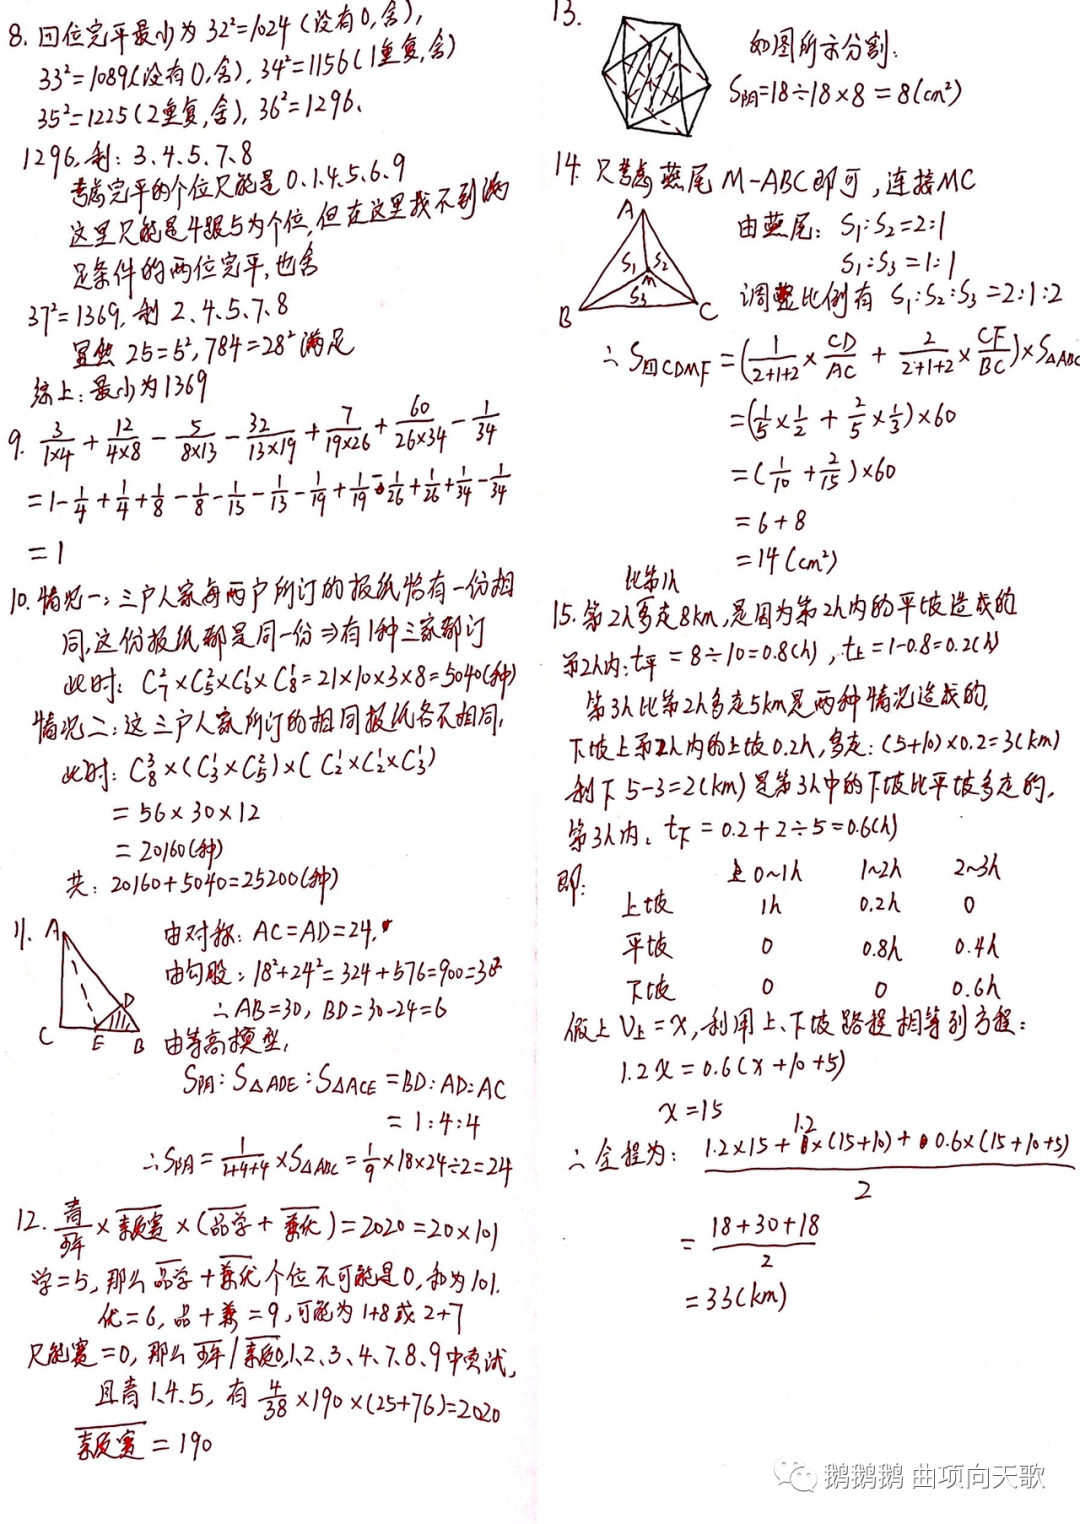 8. 四位完平最小为 32²=1024 (没有0,舍),
33²=1089(没有0,舍), 34²=1156(1重复,舍)
35²=1225(2重复,舍), 36²=1296.
1296,剩: 3、4、5、7、8
考虑完平的个位只能是 0.1.4.5.6.9
这里只能是4跟5为个位,但在这里找不到满
足条件的两位完平,也舍
37²=1369, 剩 2、4、5、7、8
显然 25=5², 784=28² 满足
综上:最小为1369
9. 3/(1×4) + 12/(4×8) - 5/(8×13) - 32/(13×19) + 7/(19×26) + 60/(26×34) - 1/34
= 1 - 1/4 + 1/4 + 1/8 - 1/8 - 1/13 - 1/13 - 1/19 + 1/19 - 1/26 + 1/26 + 1/34 - 1/34
= 1
10. 情况一:三户人家每两户所订的报纸恰有一份相
同,这份报纸都是同一份⇒有1种三家都订
此时: C₇²×C₅²×C₃¹×C₈¹=21×10×3×8=5040(种)
情况二:这三户人家所订的相同报纸各不相同,
此时: C₈³×(C₃¹×C₅²)×(C₂¹×C₂¹×C₃¹)
= 56×30×12
= 20160(种)
共: 20160+5040=25200(种)
11. A
C E B D
由对称: AC=AD=24.
由勾股: 18²+24²=324+576=900=30²
∴AB=30, BD=30-24=6
由等高模型,
S阴:S△ADE:S△ACE=BD:AD:AC
= 1:4:4
∴S阴= 1/(1+4+4) ×S△ABC= 1/9 ×18×24÷2=24
12. 青/少年 × 素质赛 ×(品学+兼优)=2020=20×101
学=5, 那么品学+兼优个位不可能是0,和为101.
优=6, 品+兼=9,可能为1+8或2+7
只能赛=0, 那么少年/素质0,1、2、3、4、7、8、9中去试,
且青1.4.5, 有 4/38 ×190×(25+76)=2020
素质赛=190
13.
如图所示分割:
S阴=18÷18×8=8(cm²)
14. 只考虑燕尾M-ABC即可,连接MC
A
S₁ S₂ M
S₃
B C
由燕尾: S₁:S₂=2:1
S₁:S₃=1:1
调整比例有 S₁:S₂:S₃=2:1:2
∴S四CDMF=(1/(2+1+2) × CD/AC + 2/(2+1+2) × CF/BC)×S△ABC
=(1/5 × 1/2 + 2/5 × 1/3)×60
=(1/10 + 2/15)×60
=6+8
=14(cm²)
比第1h
15. 第2h多走8km,是因为第2h内的平坡造成的
第2h内:t平=8÷10=0.8(h), t上=1-0.8=0.2(h)
第3h比第2h多走5km是两种情况造成的,
下坡上第2h内的上坡0.2h,多走:(5+10)×0.2=3(km)
剩下5-3=2(km)是第3h中的下坡比平坡多走的,
第3h内. t下=0.2+2÷5=0.6(h)
即: 0~1h 1~2h 2~3h
上坡 1h 0.2h 0
平坡 0 0.8h 0.4h
下坡 0 0 0.6h
假上V上=x,利用上、下坡路程相等列方程:
1.2x=0.6(x+10+5)
x=15
∴全程为: (1.2×15+1.2×(15+10)+0.6×(15+10+5))/2
= (18+30+18)/2
=33(km)
鹅鹅鹅 曲项向天歌